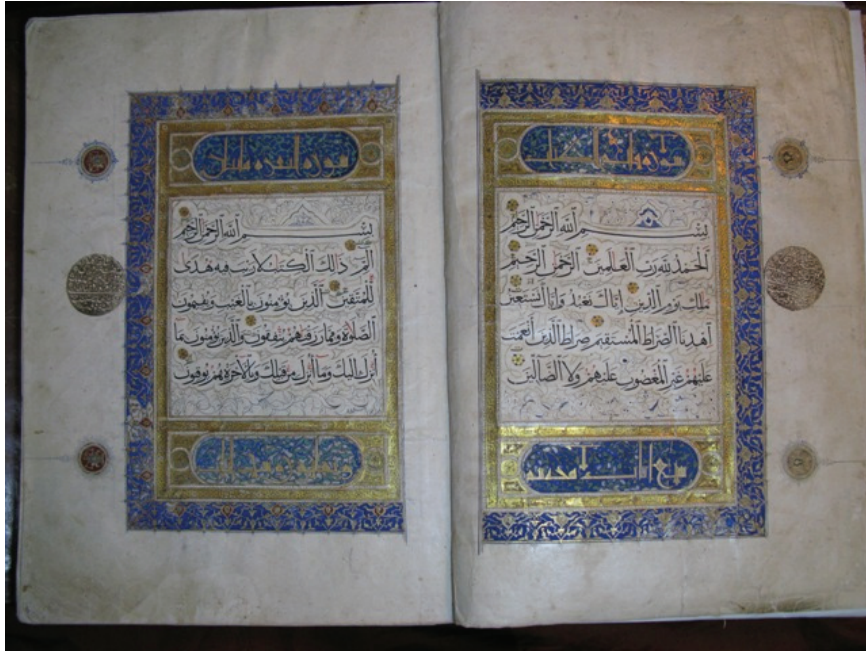 سورة
بسم الله الرحمن الرحيم
الحمد لله رب العلمين الرحمن الرحيم
ملك يوم الدين إياك نعبد وإياك نستعين
اهدنا الصراط المستقيم صراط الذين أنعمت
عليهم غير المغضوب عليهم ولا الضالين
سبع ايات
سورة البقرة
بسم الله الرحمن الرحيم
الم ذالك الكتاب لا ريب فيه هدى
للمتقين الذين يؤمنون بالغيب ويقيمون
الصلوة ومما رزقنهم ينفقون والذين يؤمنون بما
أنزل إليك وما أنزل من قبلك وبالآخرة هم يوقنون